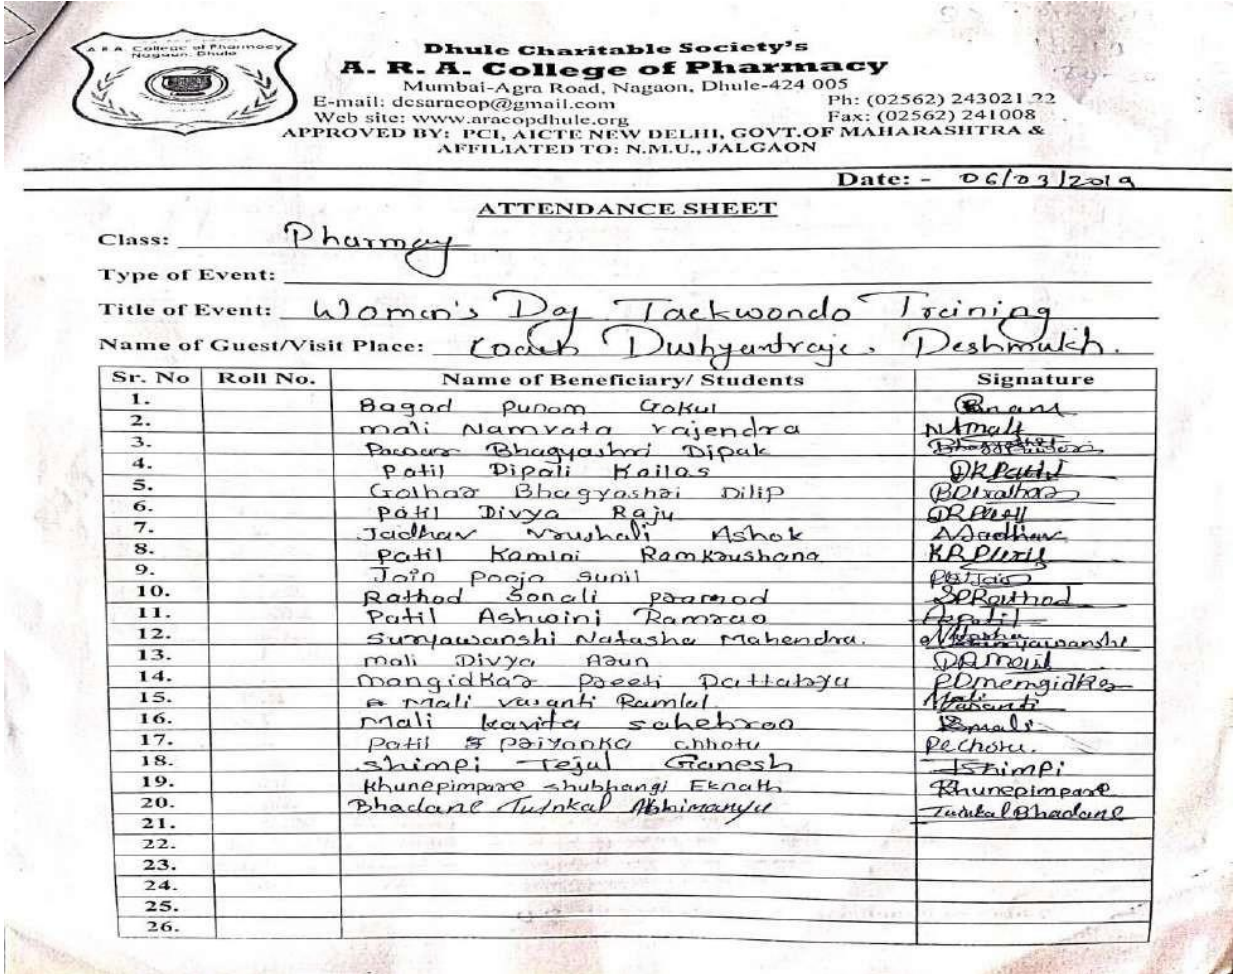 A.R.A. College of Pharmacy
Nagaon, Dhule
Dhule Charitable Society's
A. R. A. College of Pharmacy
Mumbai-Agra Road, Nagaon, Dhule-424 005
E-mail: dcsaracop@gmail.com Ph: (02562) 243021,22
Web site: www.aracopdhule.org Fax: (02562) 241008
APPROVED BY: PCI, AICTE NEW DELHI, GOVT.OF MAHARASHTRA &
AFFILIATED TO: N.M.U., JALGAON
Date: - 06/03/2019
ATTENDANCE SHEET
Class: Pharmacy
Type of Event:
Title of Event: Women's Day Taekwondo Training
Name of Guest/Visit Place: Coach Dushyantraje. Deshmukh.
Sr. No Roll No. Name of Beneficiary/ Students Signature
1. Bagad Punam Gokul
2. mali Namrata rajendra NRmali
3. Pawar Bhagyashri Dipak
4. Patil Dipali Kailas DKPatil
5. Golhar Bhagyashri Dilip BDGolhar
6. Patil Divya Raju DRPatil
7. Jadhav Vaushali Ashok AJadhav
8. Patil Kamini Ramkrushana KRPatil
9. Jain Pooja sunil PSJain
10. Rathod Sonali pramod SPRathod
11. Patil Ashwini Ramrao
12. Suryawanshi Natasha Mahendra. Natasha Suryawanshi
13. mali Divya Arun DAmali
14. mangidkar Preeti Dattatryu PDmangidkar
15. Mali vasanti Ramlal. Mali Vasanti
16. Mali kavita sahebrao Kmali
17. Patil priyanka chhotu Pechotu.
18. shimpi Tejal Ganesh Tshimpi
19. Khunepimpare shubhangi Eknath Khunepimpare
20. Bhadane Twinkal Abhimanyu Twinkal Bhadane
21.
22.
23.
24.
25.
26.